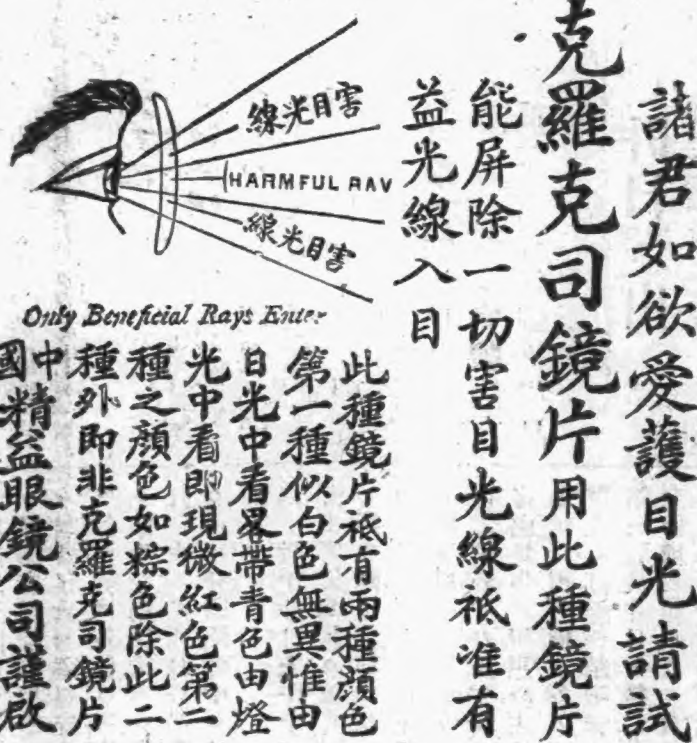 諸君如欲愛護目光請試
克羅克司鏡片用此種鏡片
能屏除一切害目光線祗准有
益光線入目
線光目害
HARMFUL RAY
線光目害
Only Beneficial Rays Enter
此種鏡片祗有兩種顔色
第一種似白色無異惟由
日光中看畧帶青色由燈
光中看即現微紅色第二
種之顔色如粽色除此二
種外即非克羅克司鏡片
中國精益眼鏡公司謹啟